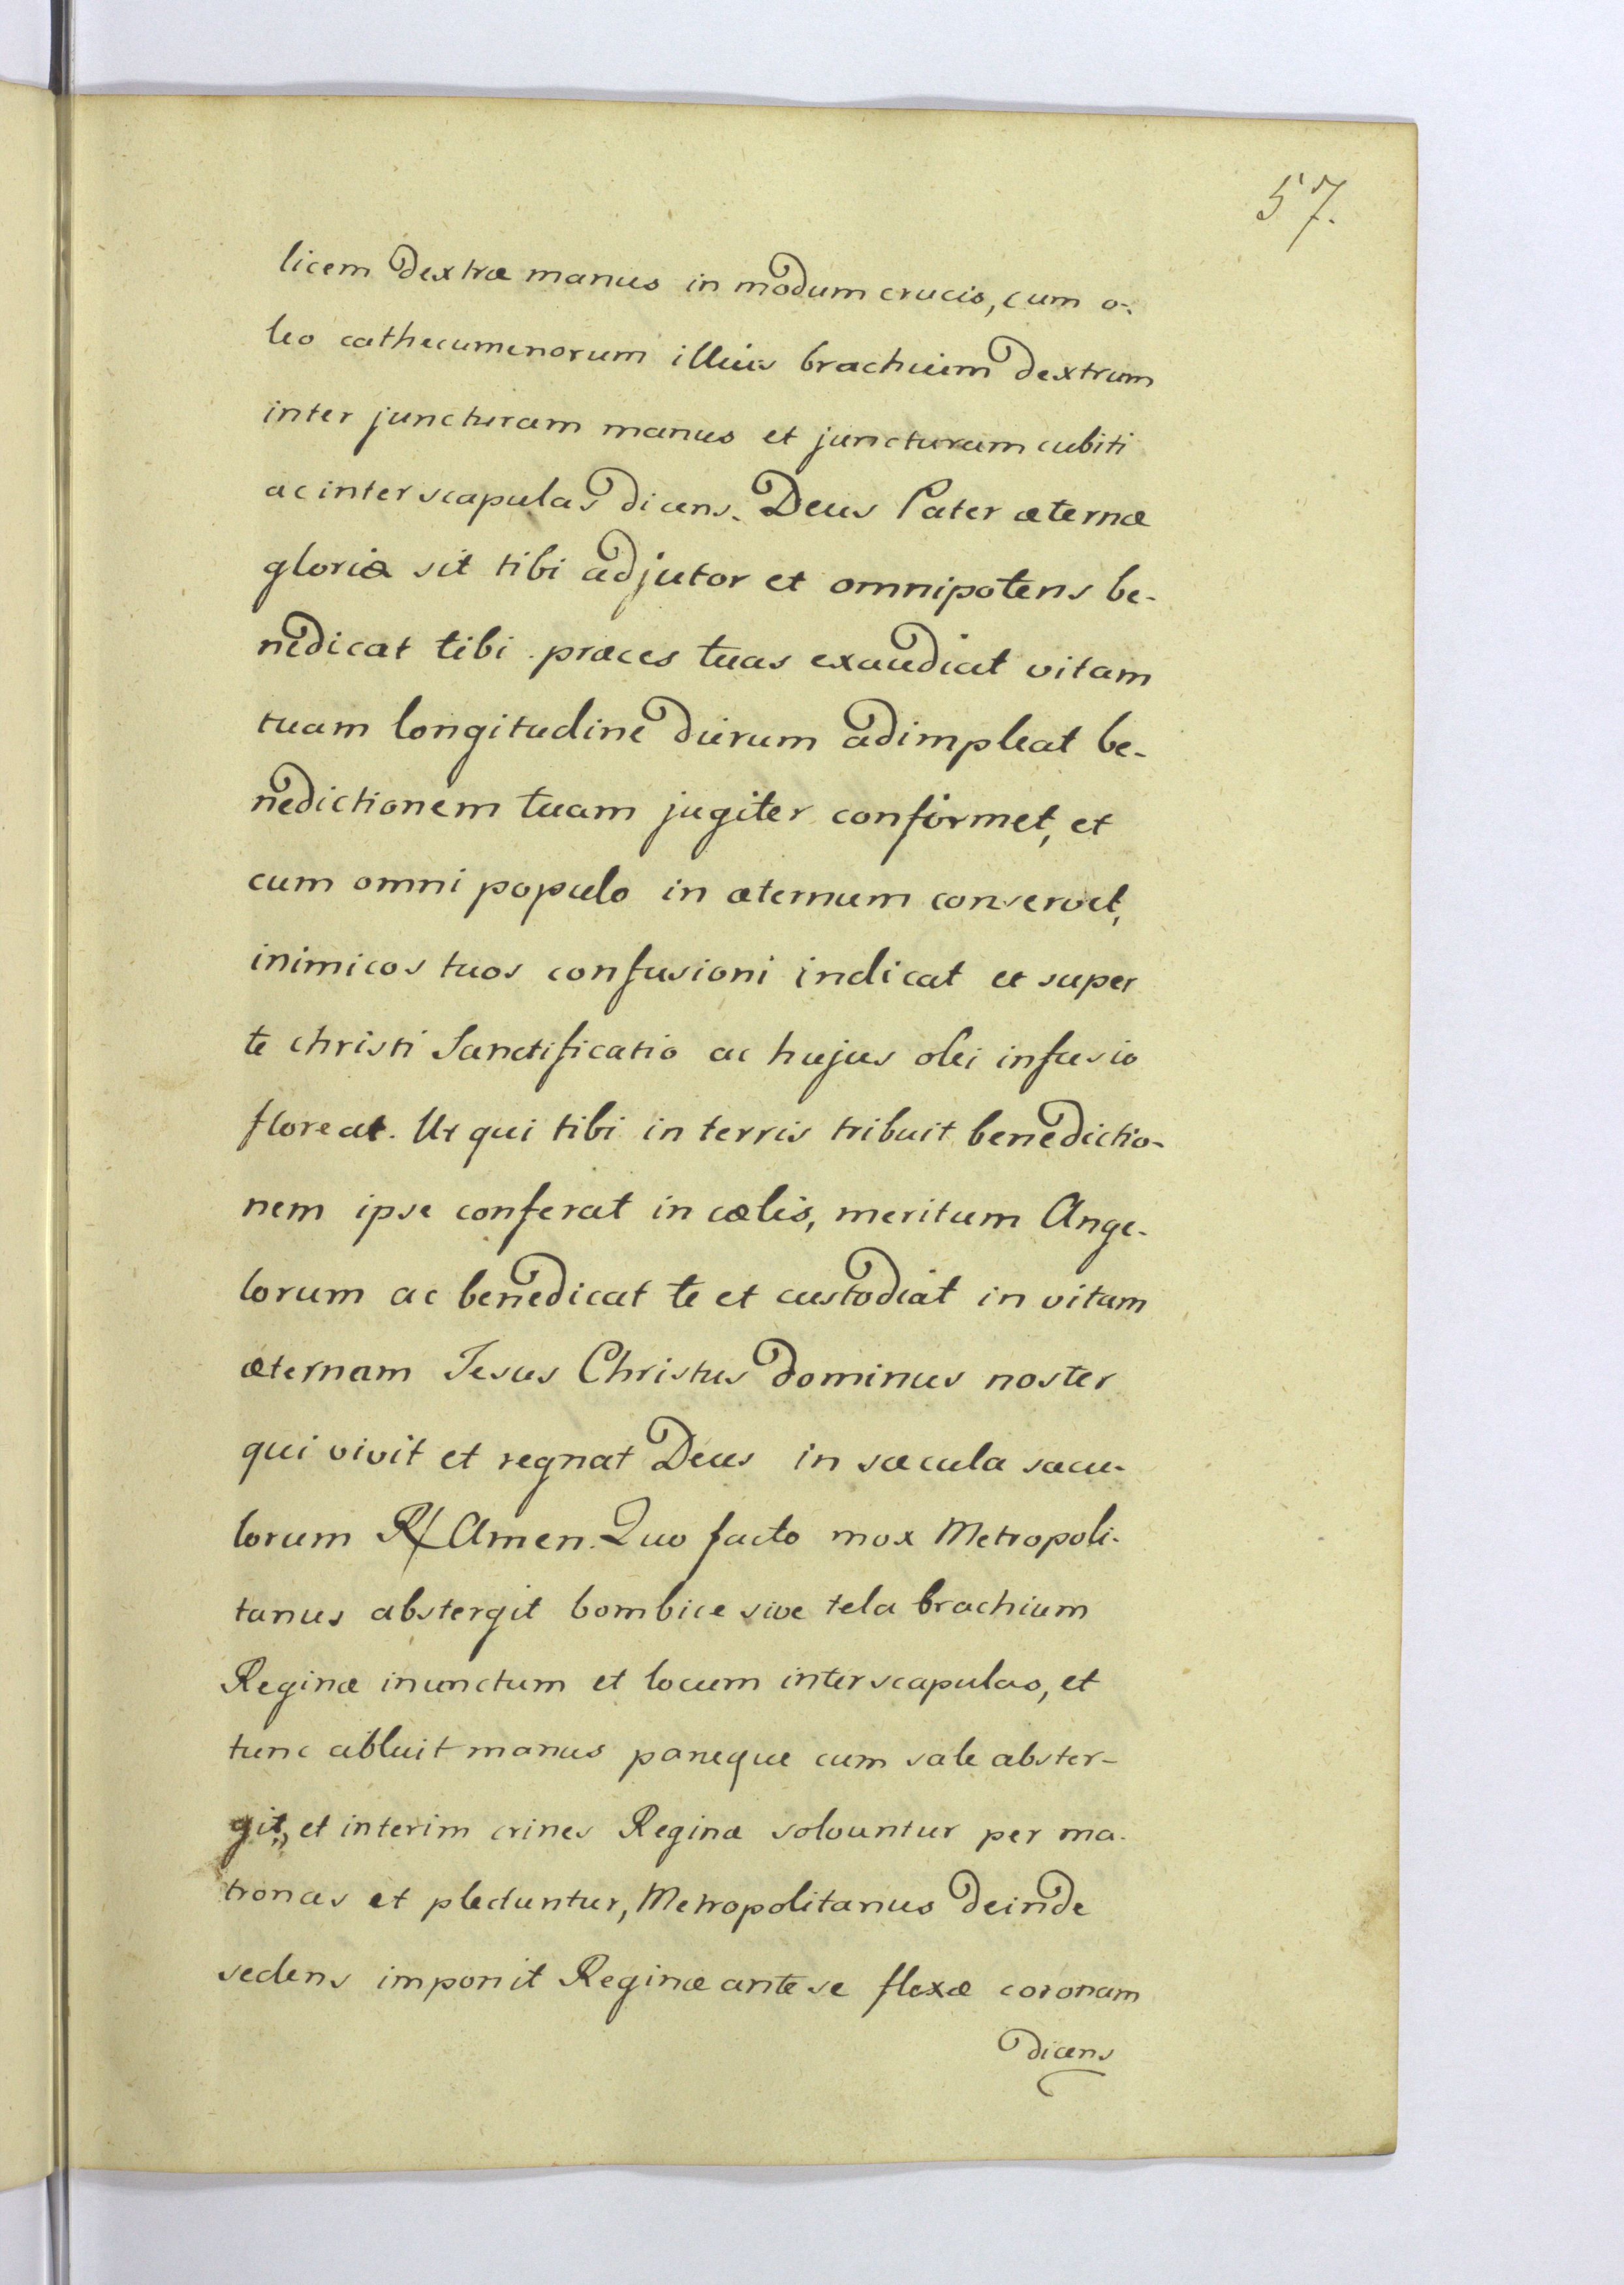 57.
licem dextræ manus in modum crucis, cum o-
leo cathecumenorum illius brachium dextrum
inter juncturam manus et juncturam cubiti
ac inter scapulas dicens. Deus Pater æternæ
gloriæ sit tibi adjutor et omnipotens be-
nedicat tibi præces tuas exaudiat vitam
tuam longitudine dierum adimpleat be-
nedictionem tuam jugiter confirmet, et
cum omni populo in æternum conservet,
inimicos tuos confusioni indicat et super
te christi Sanctificatio ac hujus olei infusio
floreat. Ut qui tibi in terris tribuit benedictio-
nem ipse conferat in cœlis, meritum Ange-
lorum ac benedicat te et custodiat in vitam
æternam Jesus Christus dominus noster
qui vivit et regnat Deus in sæcula sæcu-
lorum ℟ Amen. Quo facto mox Metropoli-
tanus abstergit bombice sive tela brachium
Reginæ inunctum et locum inter scapulas, et
tunc abluit manus paneque cum sale abster-
git, et interim crines Reginæ solvuntur per ma-
tronas et plectuntur, Metropolitanus deinde
sedens imponit Reginæ ante se flexæ coronam
dicens